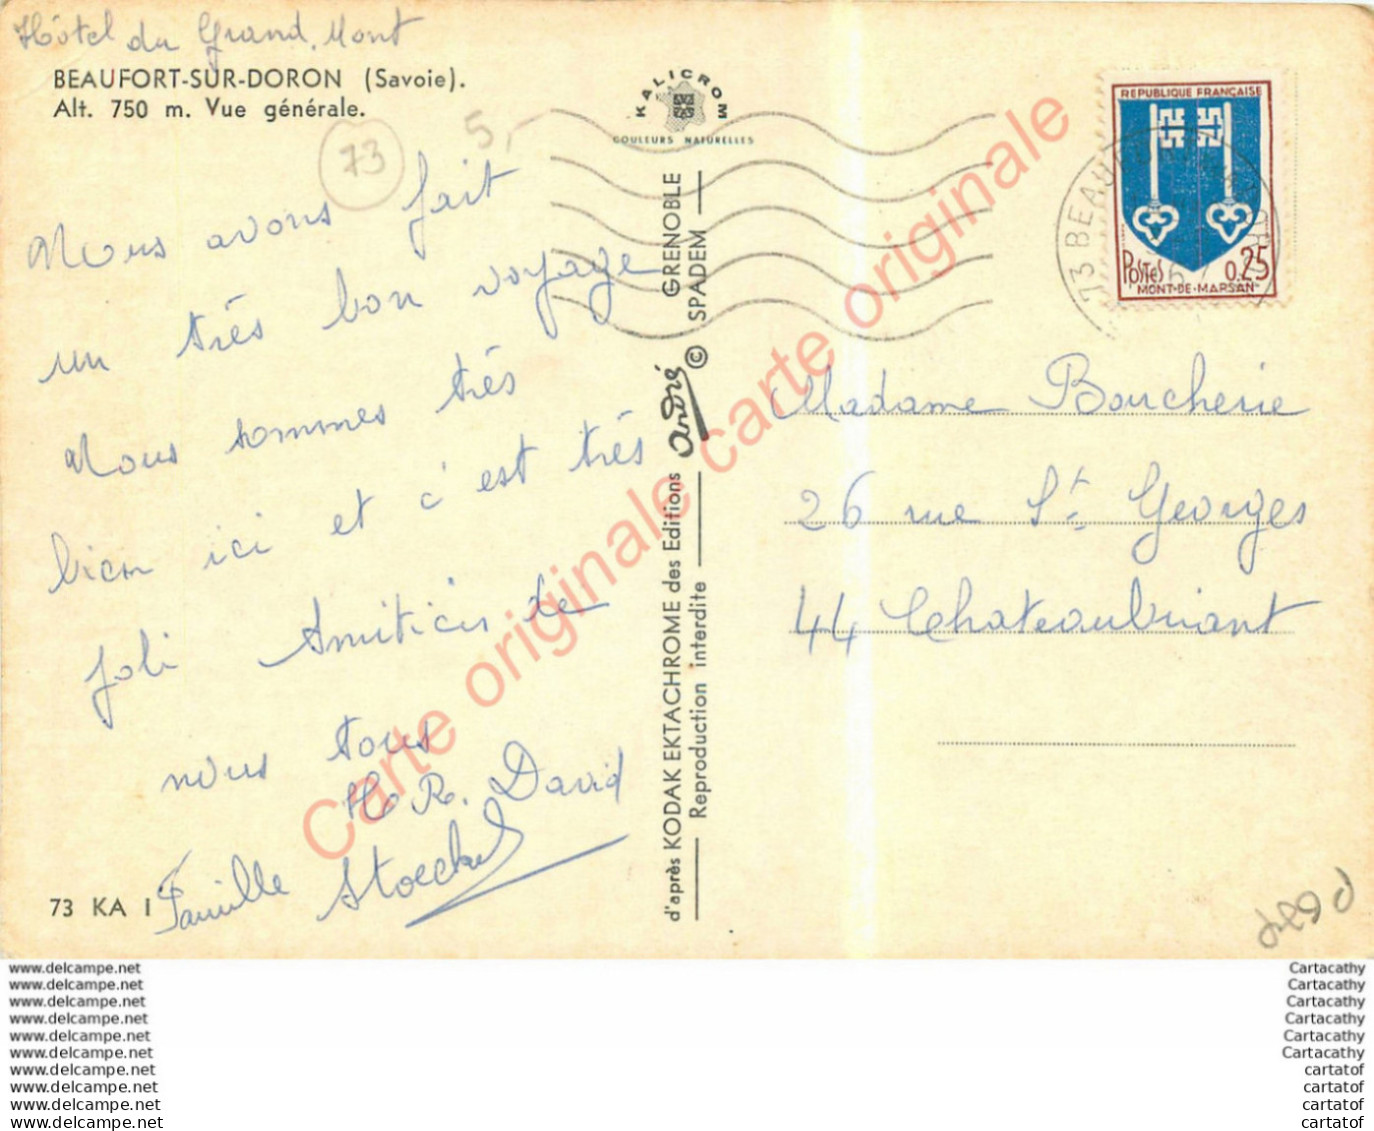 Hôtel du Grand Mont
BEAUFORT-SUR-DORON (Savoie).
Alt. 750 m. Vue générale.
73
5,-
KALICROM
COULEURS NATURELLES
REPUBLIQUE FRANÇAISE
POSTES 0,25
MONT-DE-MARSAN
73 BEAUF
Nous avons fait
un très bon voyage
Nous sommes très
bien ici et c'est très
joli Amitiés de
nous tous
H R. David
Famille Stoeckel
73 KA I
d'après KODAK EKTACHROME des Editions André GRENOBLE
Reproduction interdite © SPADEM
Madame Boucherie
26 rue St. Georges
44 Chateaubriant
Carte originale carte originale carte originale
www.delcampe.net Cartacathy
www.delcampe.net Cartacathy
www.delcampe.net Cartacathy
www.delcampe.net Cartacathy
www.delcampe.net Cartacathy
www.delcampe.net Cartacathy
www.delcampe.net cartatof
www.delcampe.net cartatof
www.delcampe.net cartatof
www.delcampe.net cartatof